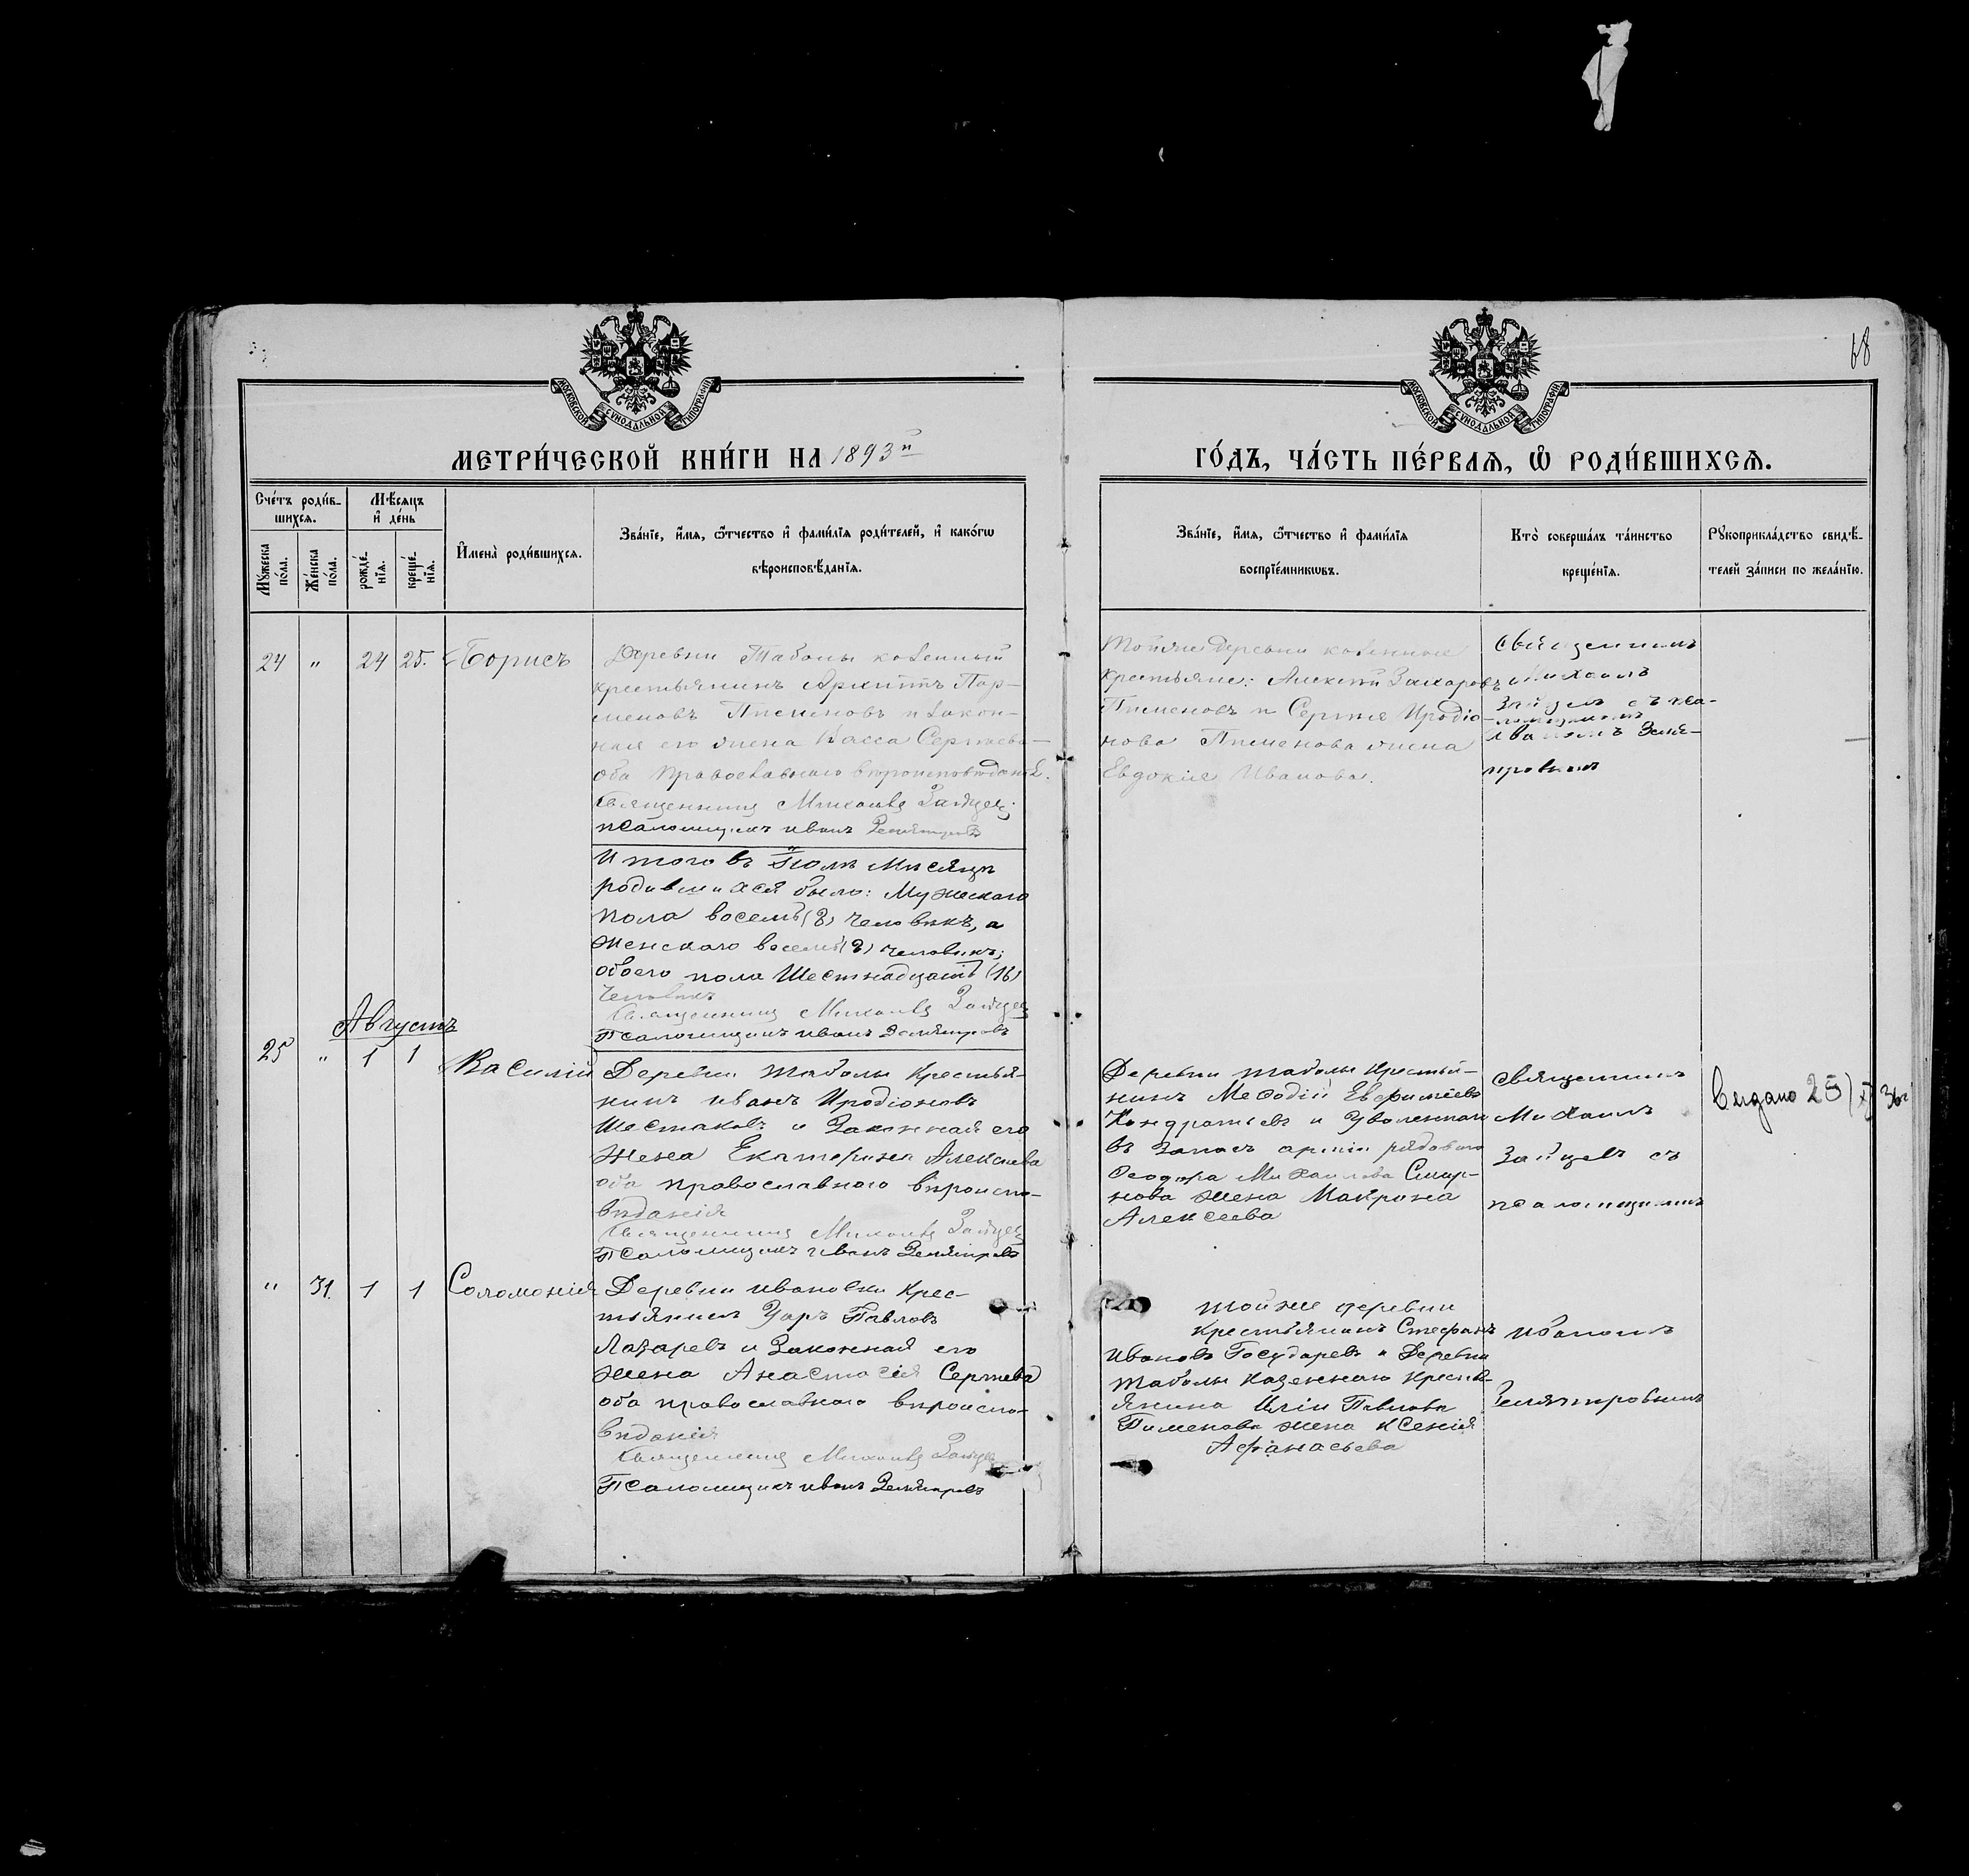 68
МОСКОВСКОЙ СѴНОДАЛЬНОЙ ТИПОГРАФІИ
МОСКОВСКОЙ СѴНОДАЛЬНОЙ ТИПОГРАФІИ
МЕТРИ́ЧЕСКОЙ КНИ́ГИ НА 1893й
ГО́ДЪ, ЧА́СТЬ ПЕ́РВАѦ, Ѡ҆ РОДИ́ВШИХСѦ.
Сче́тъ роди́в-
шихсѧ.
Мѣ́сѧцъ
и҆ де́нь
Мꙋ́жеска по́ла.
Же́нска по́ла.
рожде́-
нїѧ.
креще́-
нїѧ.
И҆мена̀ роди́вшихсѧ.
Зва́нїе, и҆́мѧ, ѻ҆́тчество и҆ фами́лїѧ роди́телей, и҆ како́гѡ
вѣроисповѣ́данїѧ.
Зва́нїе, и҆́мѧ, ѻ҆́тчество и҆ фами́лїѧ
воспрїе́мникѡвъ.
Кто̀ соверша́лъ та́инство
креще́нїѧ.
Рꙋкоприкла́дство свидѣ́-
телей за́писи по жела́нїю.
24 " 24 25. Борисъ
Деревни Таболы казенный
крестьянинъ Архиппъ Пар-
меновъ Пименовъ и закон-
ная его жена Васса Сергѣева
оба православнаго вѣроисповѣданія.
Священникъ Михаилъ Зайцев
псаломщикъ Иванъ
Тойже деревни казенные
крестьяне: Алексѣй Захаровъ
Пименовъ и Сергѣя Иродіо-
нова Пименова жена
Евдокія Иванова.
Священникъ
Михаилъ
Зайцевъ съ пса-
ломщикомъ
Иваномъ
Итого въ Іюлѣ мѣсяцѣ
родившихся было: мужескаго
пола восемь (8) человѣкъ, а
женскаго восемь (8) человѣкъ;
обоего пола шестнадцать (16)
человѣкъ
Священникъ Михаилъ Зайцев
Псаломщикъ Иванъ
Августъ
25 " 1 1 Василій
Деревни Таболы крестья-
нинъ Иванъ Иродіоновъ
Шестаковъ и законная его
жена Екатерина Алексѣева
оба православнаго вѣроиспо-
вѣданія
Священникъ Михаилъ Зайцев
Псаломщикъ Иванъ
Деревни Таболы крестья-
нинъ Меѳодій Евфиміевъ
Кондратьевъ и уволеннаго
въ запасъ арміи рядоваго
Ѳеодора Михаилова Смир-
нова жена Макрина
Алексѣева
Священникъ
Михаилъ
Зайцевъ съ
псаломщикомъ
Выдано 25
" 31. 1 1 Соломонія
Деревни Ивановки крес-
тьянинъ Уаръ Павловъ
Лазаревъ и законная его
жена Анастасія Сергѣева
оба православнаго вѣроиспо-
вѣданія
Священникъ Михаилъ Зайцев
Псаломщикъ Иванъ
Тойже деревни
крестьянинъ Стефанъ
Ивановъ Государевъ и деревни
Таболы казеннаго кресть-
янина Иліи Павлова
Пименова жена Ксенія
Аѳанасьева
Иваномъ